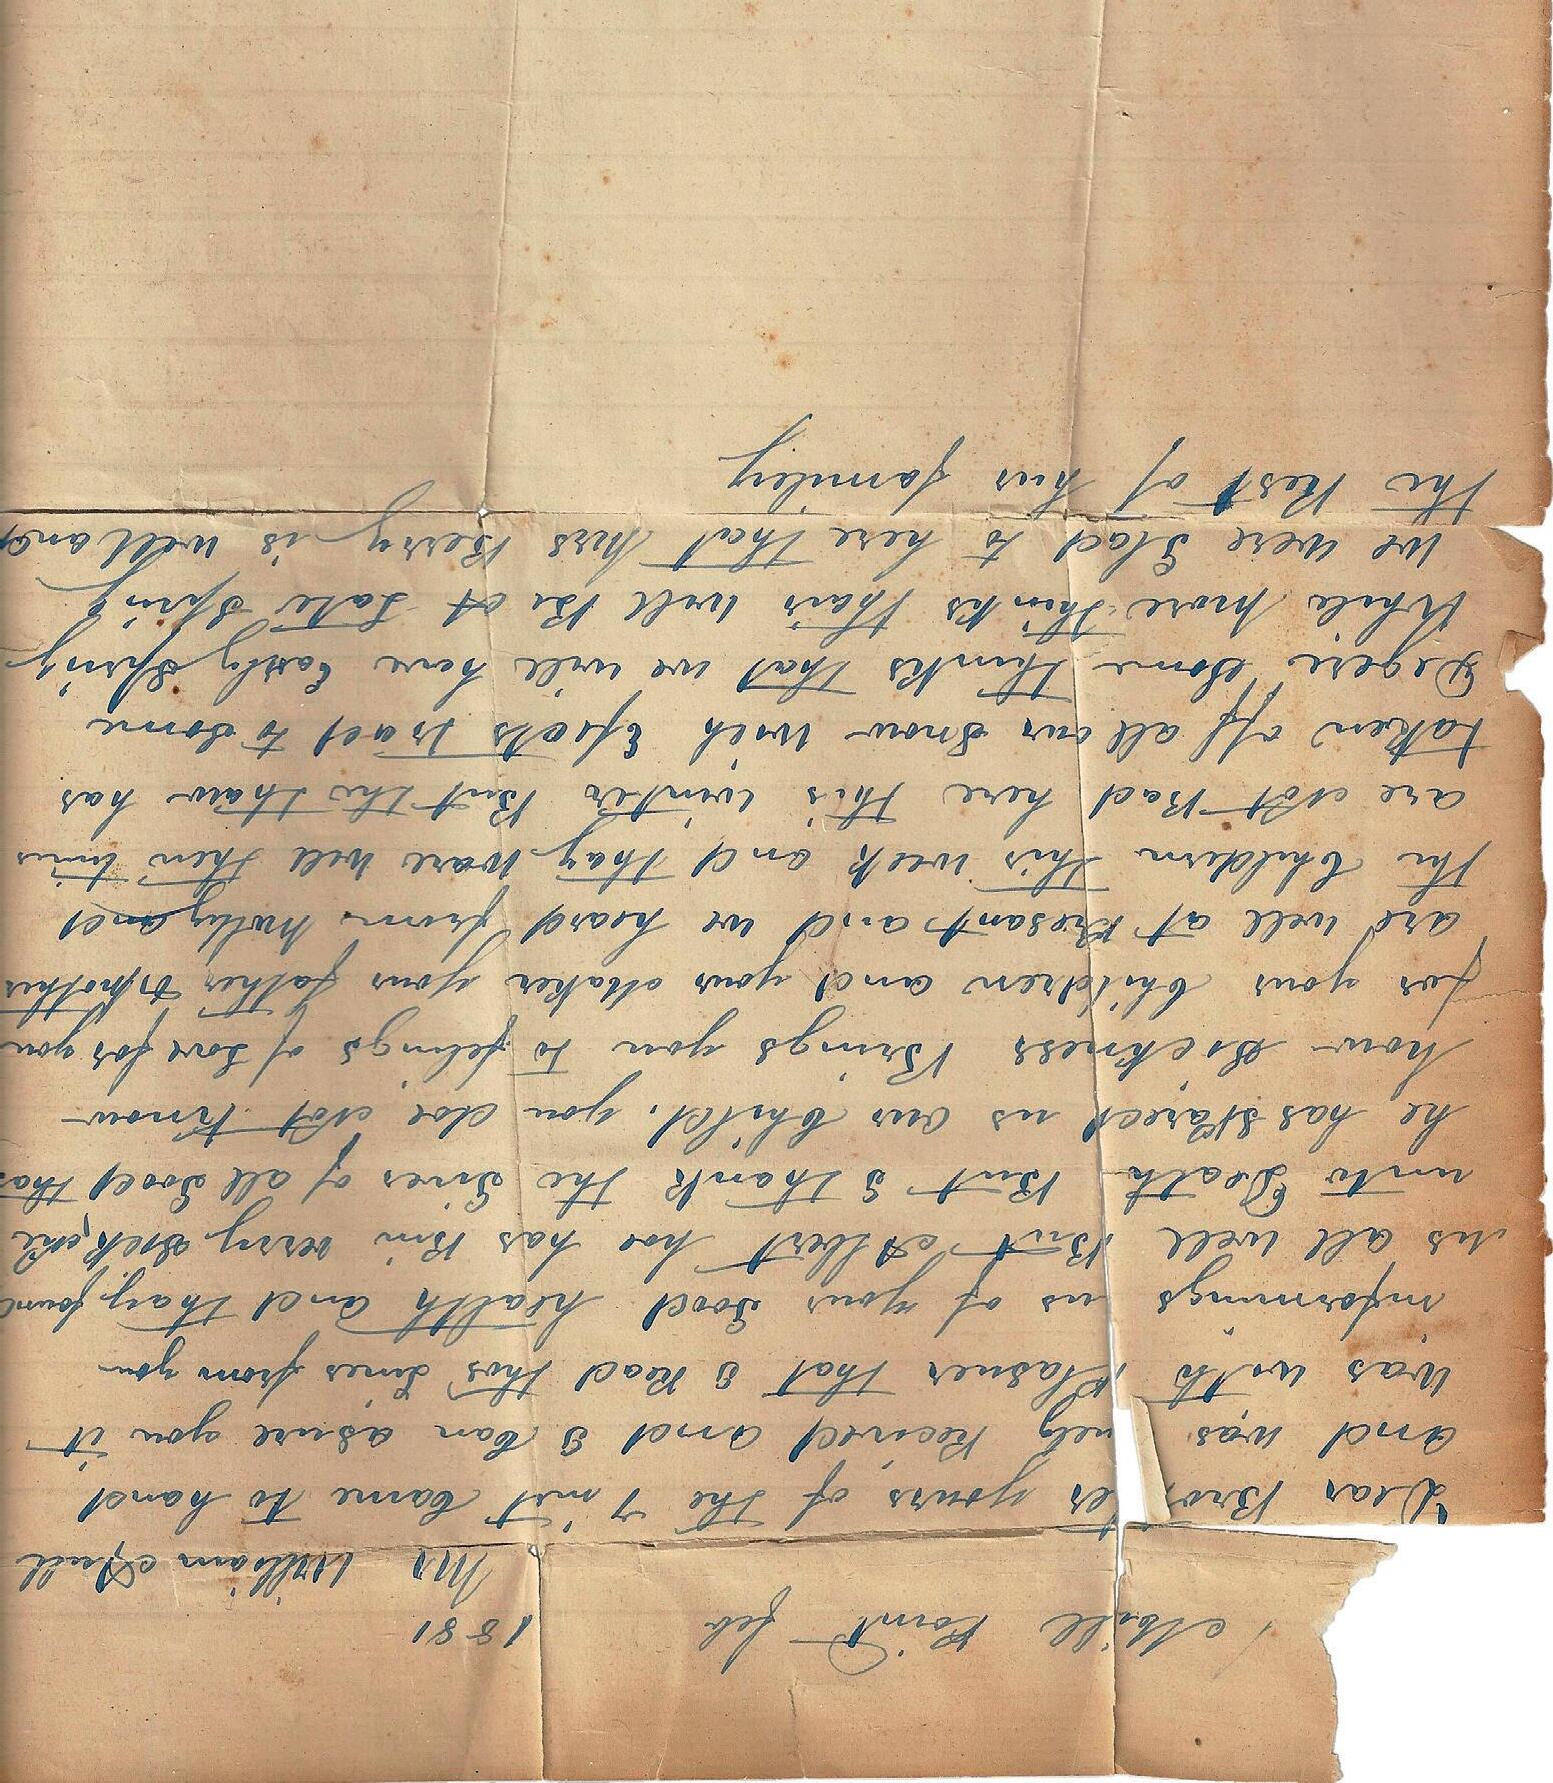 Mill Point feb 1881
Mr William
Dear Bro ter yours of the 7 inst Came to hand
and was uely Recived and I Can asure you it
was with Plasuer that I Read thos Lines from you
informings us of your Good health and thay found
us all well But Albert hoe has Bin verry Sick
unto Death But I thank the Giver of all Good that
he has Spared us our Child. you doe Not Know
how Sickness Brings you to felings of Love for you
for your Children and your Maker your father & Mother
are well at Presant and we heard from and
the Childern this week and thay ware well then times
are Not Bad here this winter But the thaw has
taken off all our Snow wich Efects trad to Some
Degere Some thinks that we will have Early Spring
While more thinks thair will Be A Late Spring
We were Glad to here that Mrs Berry is well and
the Rest of his familey